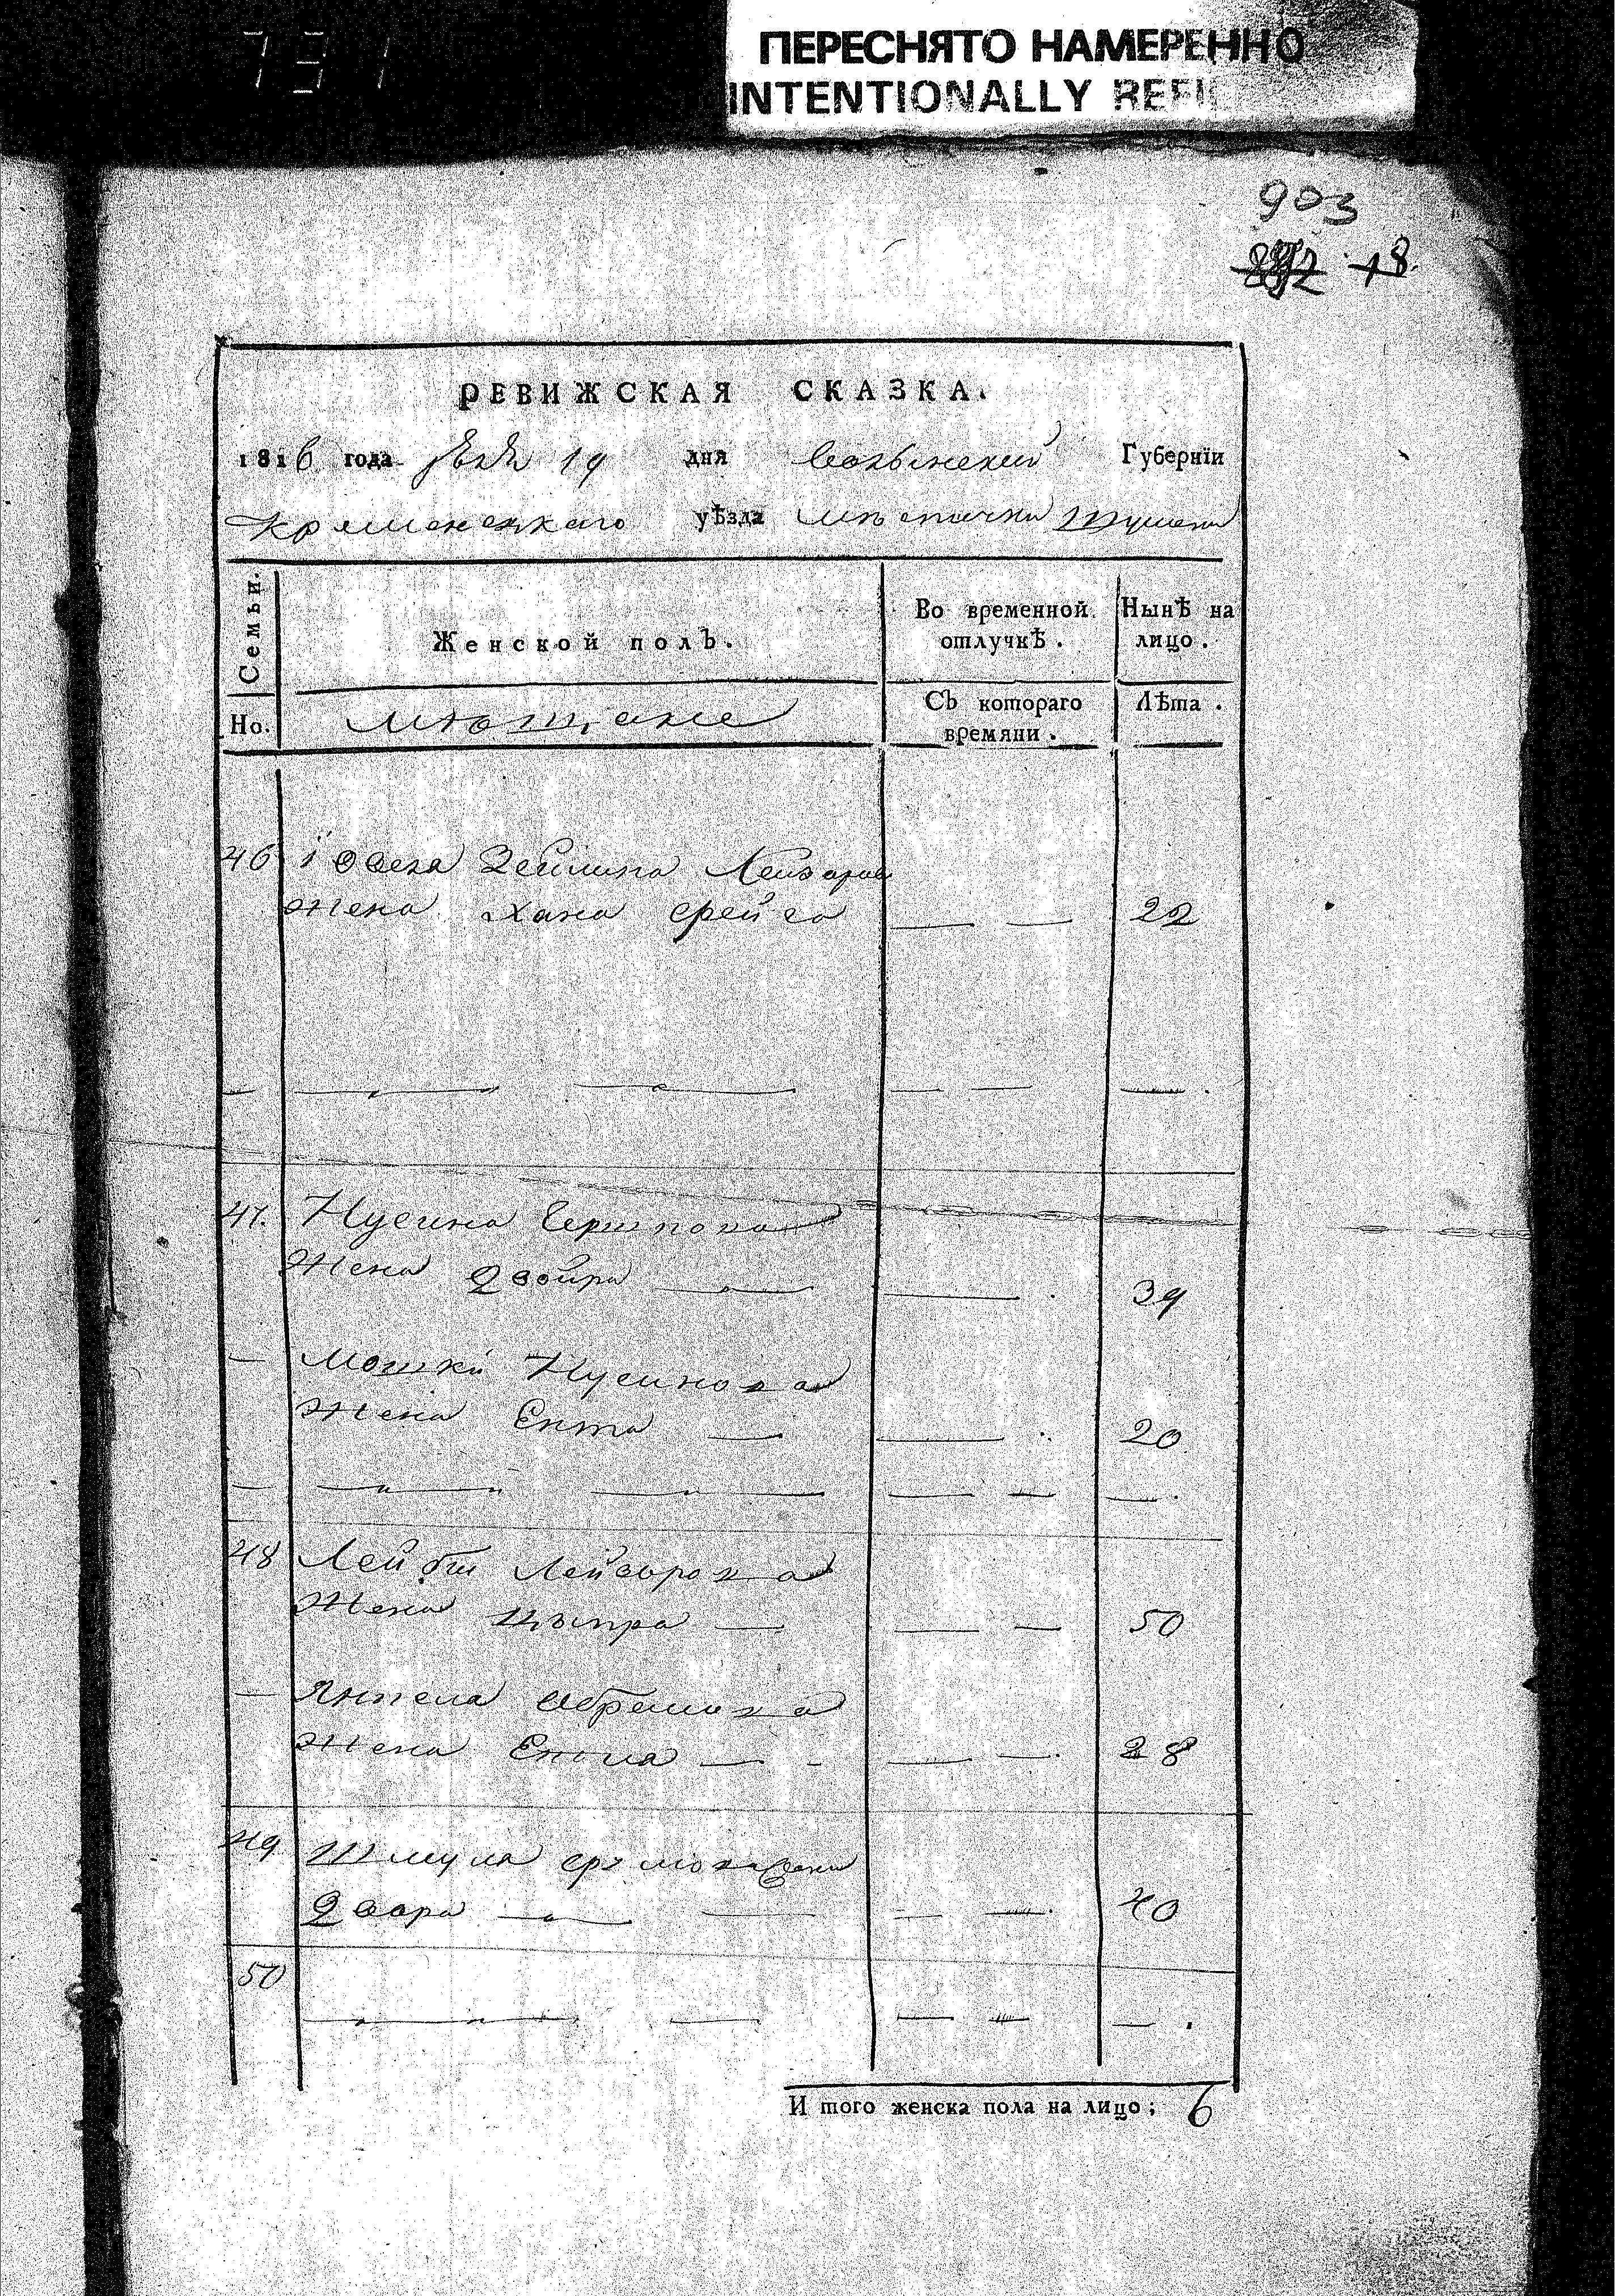 731
ПЕРЕСНЯТО НАМЕРЕННО
INTENTIONALLY REFI
903
18.
РЕВИЖСКАЯ СКАЗКА.
1816 года 19 дня Волынской Губернїи
Кременецкаго уѣзда
Семьи.
Женской полъ.
Во временной отлучкѣ.
Нынѣ на лицо.
Но.
Мѣощане
Съ котораго времяни.
Лѣта.
46 Іосся Зейлика Лейзоров
жена Хана Фрейга — — 22
47. Нусина Гершкова
Жена Двойра — — 39
— Мошка Нусинова
жена Ента — — 20
48 Лейбы Лейзорова
Жена Цыпра — — — 50
— Янкеля Абрамова
жена Енталя — — — 28
49 Шмуля
Двора — — — — 40
50
И того женска пола на лицо; 6